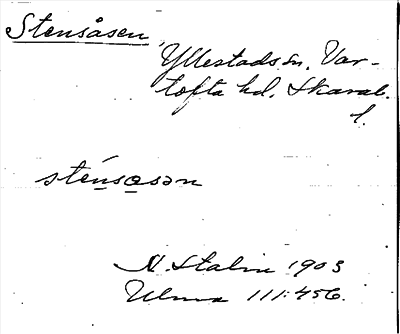 Stensåsen,
Yllestads sn. Var-
tofta hd. Skarab.
l.
sténsasən
N. Stalin 1903
Ulma 111:456.